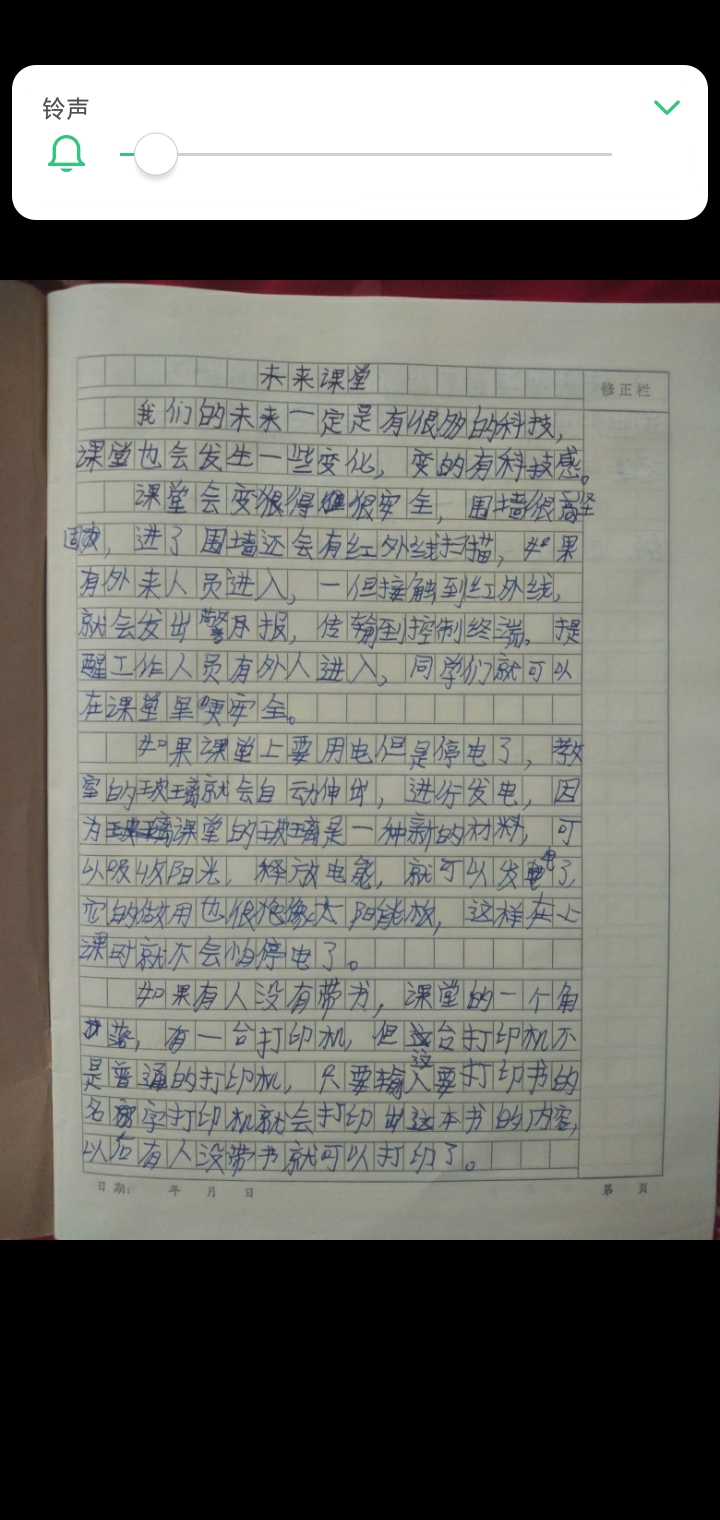 铃声
未来课堂
修正栏
我们的未来一定是有很多的科技，
课堂也会发生一些变化，变的有科技感。
课堂会变得很安全，围墙很高坚
固，进了围墙还会有红外线扫描，如果
有外来人员进入，一但接触到红外线，
就会发出警报，传输到控制终端，提
醒工作人员有外人进入，同学们就可以
在课堂里更安全。
如果课堂上要用电但是停电了，教
室的玻璃就会自动伸出，进行发电，因
为课堂的玻璃是一种新的材料，可
以吸收阳光，释放电能，就可以发电了，
它的做用也很像太阳能板，这样在上
课时就不会怕停电了。
如果有人没有带书，课堂的一个角
落，有一台打印机，但这台打印机不
是普通的打印机，只要输入这要打印书的
名字打印机就会打印出这本书的内容，
以后有人没带书就可以打印了。
日期： 年 月 日 第 页